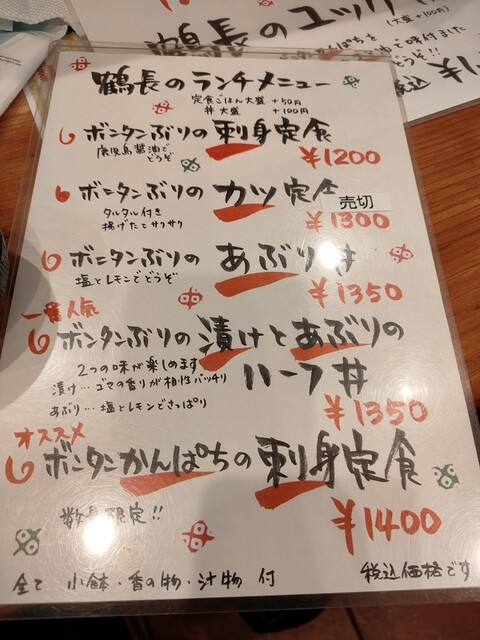 鶴長のユッケ
(大盛+100円)
鶴長のランチメニュー
定食ごはん大盛 +50円
丼大盛 +100円
ボンタンぶりの刺身定食
鹿児島醤油でどうぞ
¥1200
ボンタンぶりのカツ定食
売切
タルタル付き
揚げたてサクサク
¥1300
ボンタンぶりのあぶり丼
塩とレモンでどうぞ
¥1350
一番人気
ボンタンぶりの漬けとあぶりの
ハーフ丼
2つの味が楽しめます
漬け…ゴマの香りが相性バッチリ
あぶり…塩とレモンでさっぱり
¥1350
オススメ
ボンタンかんぱちの刺身定食
数量限定!!
¥1400
全て 小鉢・香の物・汁物 付
税込価格です